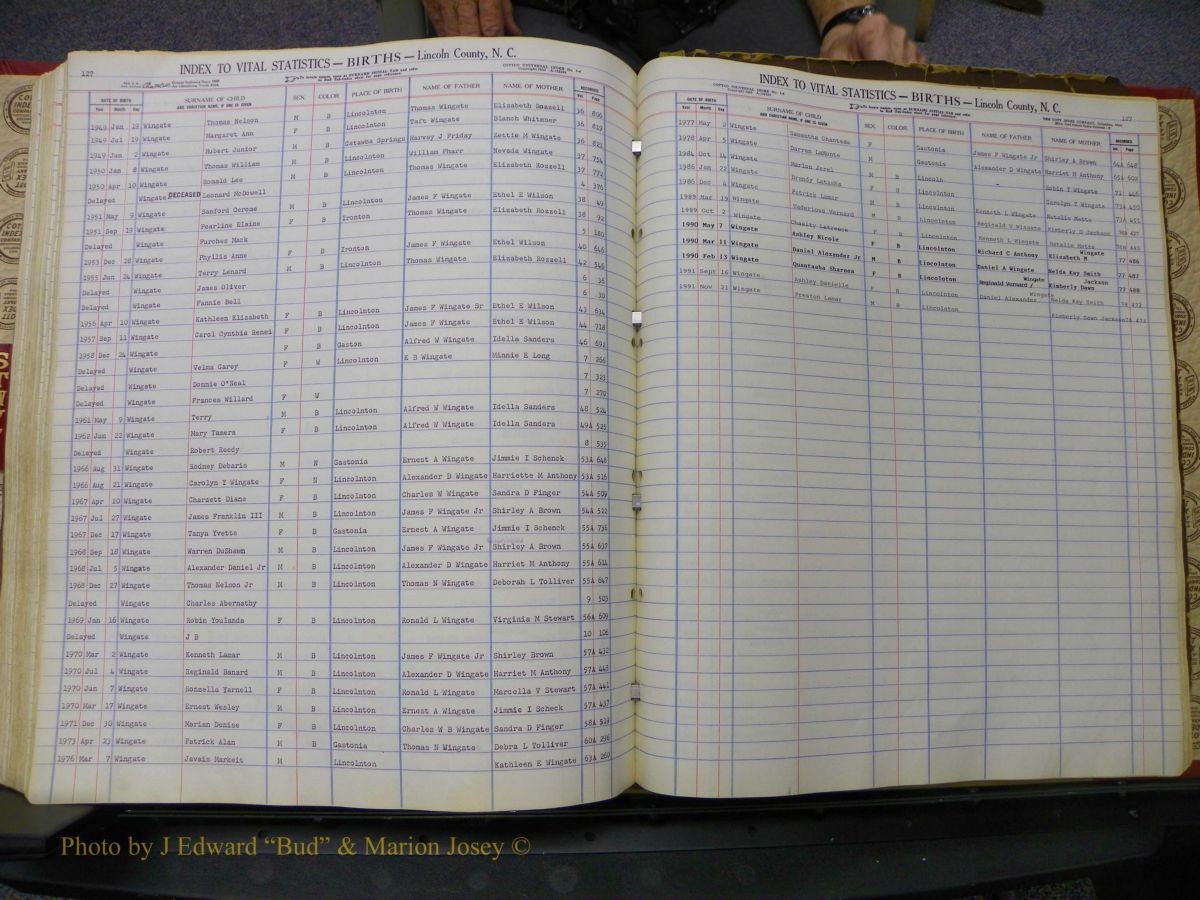 127
INDEX TO VITAL STATISTICS — BIRTHS — Lincoln County, N. C.
DATE OF BIRTH
Year Month Day
SURNAME OF CHILD
AND CHRISTIAN NAME, IF ONE IS GIVEN
SEX
COLOR
PLACE OF BIRTH
NAME OF FATHER
NAME OF MOTHER
RECORDED
Vol. Page
1949 Jan 19 Wingate Thomas Nelson M B Lincolnton Thomas Wingate Elizabeth Rozzell 36 806
1949 Jul 19 Wingate Margaret Ann F B Lincolnton Taft Wingate Blanch Whitener 36 819
1949 Jun 2 Wingate Hubert Junior M B Catawba Springs Harvey J Friday Zettie M Wingate 36 821
1950 Jan 8 Wingate Thomas William M B Lincolnton William Pharr Nevada Wingate 37 754
1950 Apr 10 Wingate Ronald Lee M B Lincolnton Thomas Wingate Elizabeth Rozzell 37 772
Delayed Wingate DECEASED Leonard McDowell 4 376
1951 May 9 Wingate Sanford Cerome M B Lincolnton James F Wingate Ethel E Wilson 38 49
1951 Sep 19 Wingate Pearline Elaine F B Ironton Thomas Wingate Elizabeth Rozzell 38 92
Delayed Wingate Furches Mack 5 180
1953 Dec 28 Wingate Phyllis Anne F B Ironton James F Wingate Ethel Wilson 40 646
1955 Jun 24 Wingate Terry Lenard M B Lincolnton Thomas Wingate Elizabeth Rozzell 42 546
Delayed Wingate James Oliver 6 35
Delayed Wingate Fannie Bell 6 30
1956 Apr 10 Wingate Kathleen Elizabeth F B Lincolnton James F Wingate Sr Ethel E Wilson 43 634
1957 Sep 11 Wingate Carol Cynthia Renei F B Lincolnton James F Wingate Ethel E Wilson 44 718
1958 Dec 24 Wingate F B Gaston Alfred W Wingate Idella Sanders 46 692
Delayed Wingate Velma Carey F W Lincolnton E B Wingate Minnie E Long 7 266
Delayed Wingate Donnie O'Neal 7 323
Delayed Wingate Frances Willard F W 7 270
1961 May 9 Wingate Terry M B Lincolnton Alfred W Wingate Idella Sanders 48 524
1962 Jun 22 Wingate Mary Tamera F B Lincolnton Alfred W Wingate Idella Sanders 49A 525
Delayed Wingate Robert Reedy 8 535
1966 Aug 31 Wingate Rodney Debaris M N Gastonia Ernest A Wingate Jimmie I Schenck 53A 648
1966 Aug 21 Wingate Carolyn Y Wingate F N Lincolnton Alexander D Wingate Harriette M Anthony 53A 516
1967 Apr 20 Wingate Charzett Diane F B Lincolnton Charles W Wingate Sandra D Finger 54A 509
1967 Jul 27 Wingate James Franklin III M B Lincolnton James F Wingate Jr Shirley A Brown 54A 522
1967 Dec 17 Wingate Tanya Yvette F B Gastonia Ernest A Wingate Jimmie I Schenck 55A 736
1968 Sep 18 Wingate Warren DuShawn M B Lincolnton James F Wingate Jr Shirley A Brown 55A 637
1968 Jul 5 Wingate Alexander Daniel Jr M B Lincolnton Alexander D Wingate Harriet M Anthony 55A 614
1968 Dec 27 Wingate Thomas Nelson Jr M B Lincolnton Thomas N Wingate Deborah L Tolliver 55A 647
Delayed Wingate Charles Abernathy 9 503
1969 Jan 16 Wingate Robin Youlanda F B Lincolnton Ronald L Wingate Virginia M Stewart 56A 609
Delayed Wingate J B 10 106
1970 Mar 2 Wingate Kenneth Lamar M B Lincolnton James F Wingate Jr Shirley Brown 57A 432
1970 Jul 4 Wingate Reginald Banard M B Lincolnton Alexander D Wingate Harriet M Anthony 57A 445
1970 Jun 7 Wingate Ronzella Yarnell F B Lincolnton Ronald L Wingate Marcella V Stewart 57A 441
1970 Mar 17 Wingate Ernest Wesley M B Lincolnton Ernest A Wingate Jimmie I Scheck 57A 437
1971 Dec 30 Wingate Marian Denise F B Lincolnton Charles W B Wingate Sandra D Finger 58A 519
1973 Apr 23 Wingate Patrick Alan M B Gastonia Thomas N Wingate Debra L Tolliver 60A 296
1976 Mar 7 Wingate Javais Markeit M Lincolnton Kathleen E Wingate 63A 260
INDEX TO VITAL STATISTICS — BIRTHS — Lincoln County, N. C.
127
DATE OF BIRTH
Year Month Day
SURNAME OF CHILD
AND CHRISTIAN NAME, IF ONE IS GIVEN
SEX
COLOR
PLACE OF BIRTH
NAME OF FATHER
NAME OF MOTHER
RECORDED
Vol. Page
1977 May 2 Wingate Samantha Chantema F Gastonia James F Wingate Jr Shirley A Brown 64A 648
1978 Apr 5 Wingate Darren LaMonte M Gastonia Alexander D Wingate Harriet H Anthony 65A 602
1984 Oct 14 Wingate Marlon Jerel M B Lincoln - Robin Y Wingate 71 446
1986 Jan 22 Wingate Brandy Latasha F B Lincolnton Carolyn Y Wingate 73A 450
1986 Dec 4 Wingate Patrick Lamar M B Lincolnton Kenneth L Wingate Natalie Motts 73A 451
1989 Mar 19 Wingate Vaderious Vernard M B Lincolnton Reginald V Wingate Kimberly D Jackson 76B 427
1989 Oct 2 Wingate Chasity Latreece F B Lincolnton Kenneth L Wingate Natalie Motts 76B 443
1990 May 7 Wingate Ashley Nicole F B Lincolnton Richard C Anthony Elizabeth M Wingate 77 486
1990 Mar 11 Wingate Daniel Alexander Jr M B Lincolnton Daniel A Wingate Nelda Kay Smith 77 487
1990 Feb 13 Wingate Quantasha Sharnea F B Lincolnton Reginald Vernard Wingate Kimberly Dawn Jackson 77 488
1991 Sept 16 Wingate Ashley Danielle F B Lincolnton Daniel Alexander Wingate Nelda Kay Smith 78 472
1991 Nov 21 Wingate Preston Lamar M B Lincolnton Kimberly Dawn Jackson 78 473
Photo by J Edward “Bud” & Marion Josey ©